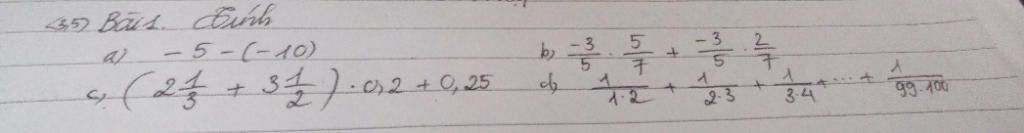 (3,5) Bài 1. Tính
a) -5 - (-10)
b) \frac{-3}{5} \cdot \frac{5}{7} + \frac{-3}{5} \cdot \frac{2}{7}
c) (2\frac{1}{3} + 3\frac{1}{2}) \cdot 0,2 + 0,25
d) \frac{1}{1 \cdot 2} + \frac{1}{2 \cdot 3} + \frac{1}{3 \cdot 4} + \cdots + \frac{1}{99 \cdot 100}